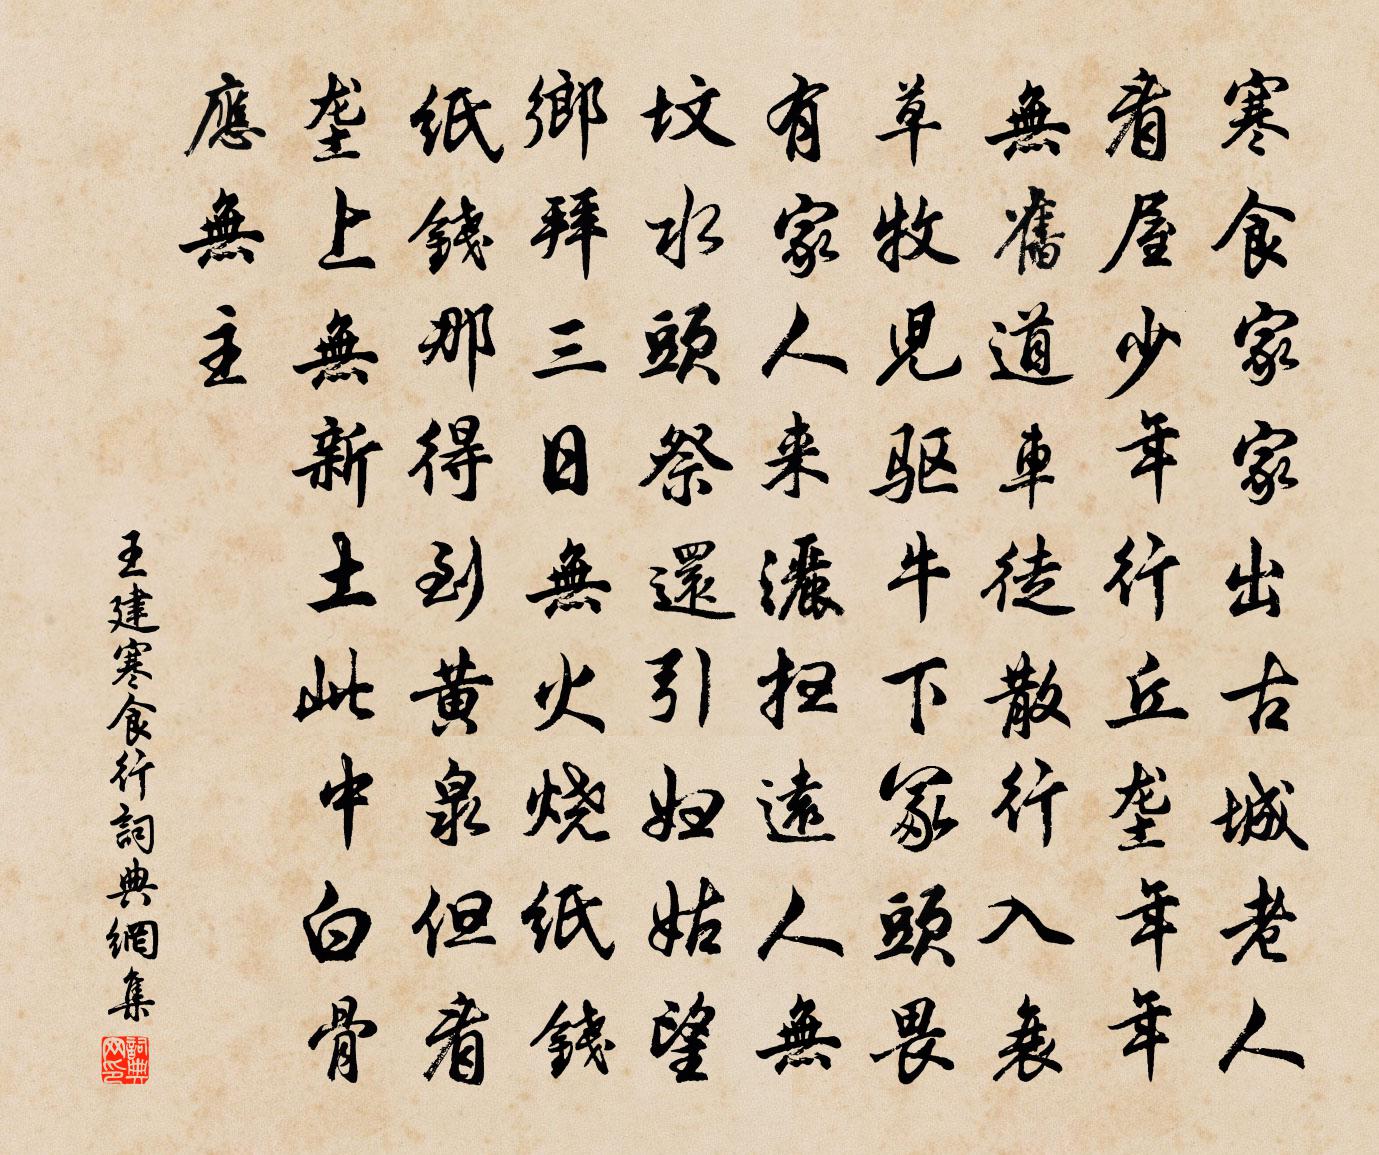 寒食家家出古城老人
看屋少年行丘垄年年
無舊道車徒散行入衰
草牧児驱牛下冢頭畏
有家人来灑扫遠人無
坟水頭祭還引妇姑望
鄉拜三日無火烧纸錢
纸錢那得到黄泉但看
垄上無新土此中白骨
應無主
王建寒食行詞典網集
詞典网印